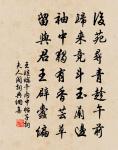 後苑尋青趁午前
歸來競斗玉闌邊
袖中獨有香芸草
留與君王辟蠹編
王珪端午內中帖子詞
夫人閣